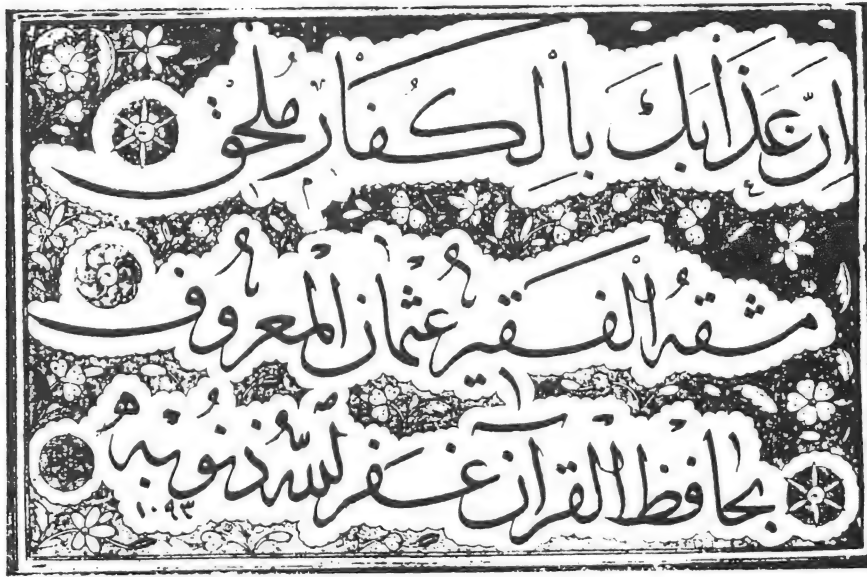 اِنَّ عَذَابَكَ بِالْكُفَّارِ مُلْحِقٌ
مشقهُ الْفقير عُثمان الْمعروُف
بحافظ الْقرآن غفر اللّٰه ذنوُبهُ
١٠٩٣